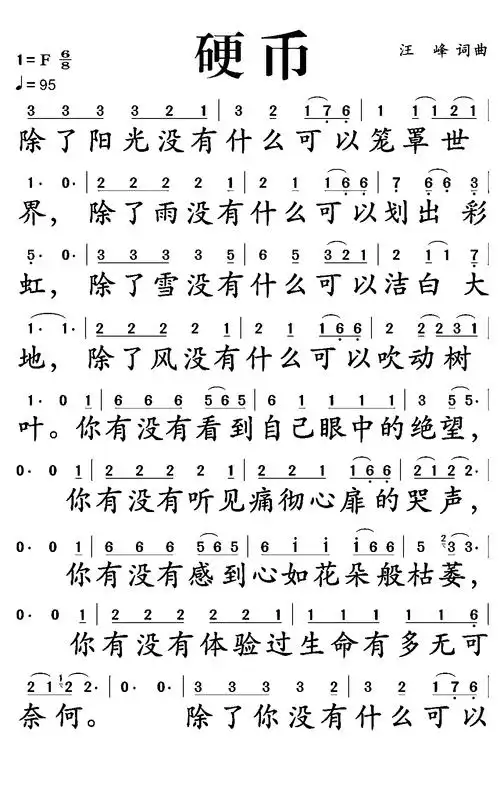 硬币
汪 峰 词曲
1=F 6/8
♩=95
3 3 3 3 2 1 | 3 2 1 7 6 | 1 1 1 2 1 |
除了阳光没有什么可以笼罩世
1· 0· | 2 2 2 2 1 | 2 1 1 6 6 | 7 6 6 3 |
界，除了雨没有什么可以划出 彩
5· 0· | 3 3 3 3 5 | 6 5 3 2 1 | 2 1 1 7 |
虹，除了雪没有什么可以洁白 大
1· 1· | 2 2 2 2 1 | 2 1 1 6 6 | 2 2 2 3 1 |
地，除了风没有什么可以吹动树
1· 0 1 | 6 6 6 5 6 5 | 6 1 1 1 1 | 3 5 5· |
叶。你有没有看到自己眼中的绝望，
0· 0 1 | 2 2 2 2 | 2 2 2 1 6 6 | 2 1 2 2· |
你有没有听见痛彻心扉的哭声，
0· 0 1 | 6 6 6 5 6 5 | 6 i i i 6 6 | 5 3 3· |
你有没有感到心如花朵般枯萎，
0· 0 1 | 2 2 2 2 2 2 | 1 1 1 1 1 6 |
你有没有体验过生命有多无可
2 1 2 2· | 0· 0· | 3 3 3 3 2 | 3 2 1 7 6 |
奈何。 除了你没有什么可以